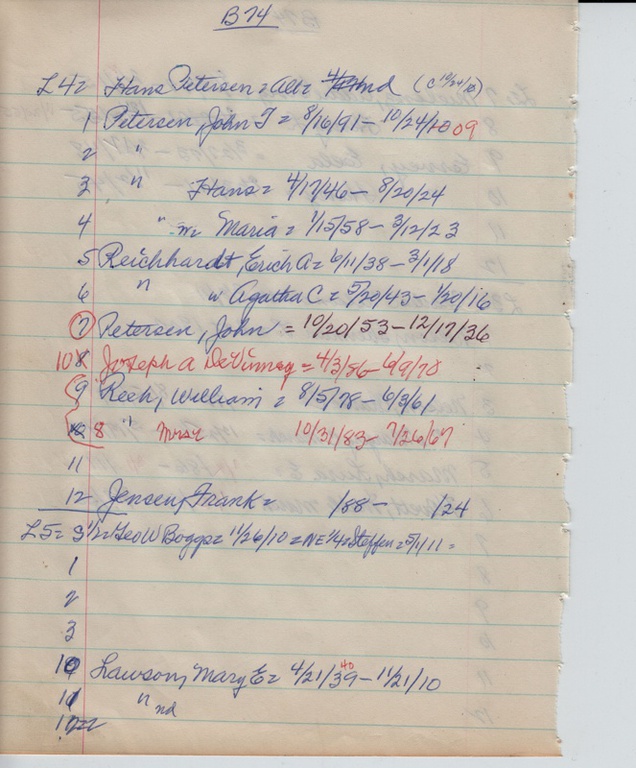 B 74
L4= Hans Petersen = All = nd (c 10/24/10)
1 Petersen, John T = 8/16/91 - 10/24/10 09
2 "
3 " Hans = 4/17/46 - 8/20/24
4 " w= Maria = 1/15/58 - 3/12/23
5 Reichhardt, Erich A = 6/11/38 - 3/1/18
6 " w Agatha C = 5/20/43 - 1/20/16
7 Petersen, John = 10/20/53 - 12/17/36
10 8 Joseph A DeVinney = 4/3/86 - 6/9/70
9 Reek, William = 8/5/78 - 6/3/61
8 " Mrs 10/31/83 - 7/26/67
11
12 Jensen, Frank = /88 - /24
L5= S 1/2 = Geo W Boggs = 11/26/10 = NE 1/4 = Steffen = 5/1/11 =
1
2
3
10 Lawson, Mary E = 4/21/39 40 - 11/21/10
11 " nd
12